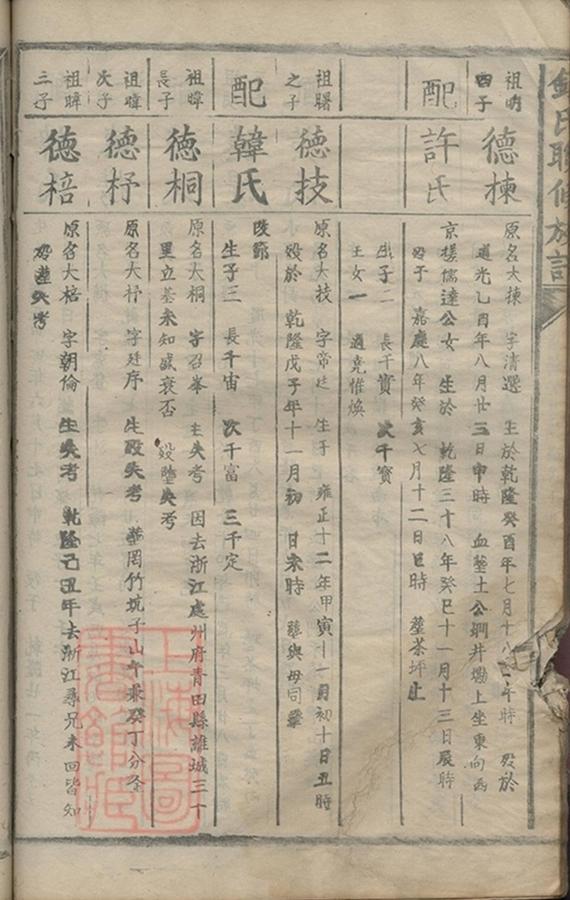 氏聯修族譜
祖明
四子
德棟
原名大棟 字清選 生於乾隆癸酉年七月十八 午時 歿於
道光乙酉年八月廿三日申時 血塟土公 井 上坐東向西
配
許氏
京援儒達公女 生於 乾隆三十八年癸巳十一月十三日辰時
歿于 嘉慶八年癸亥七月十二日巳時 塟茶坪
生子二 長千實 次千寶
王女一 適堯惟煥
祖曙
之子
德技
原名大技 字常 生于 雍正十二年甲寅十一月初十日丑時
歿於 乾隆戊子年十一月初 日未時 塟與母同
配
韓氏
改節
生子三 長千宙 次千富 三千定
祖暐
長子
德桐
原名大桐 字召峯 生失考 因去浙江處州府青田縣 城三十
里立基未知盛衰否 歿塟失考
祖暐
次子
德杼
原名大杼 字廷序 生歿失考 塟岡竹坑子山午兼癸丁分金
祖暐
三子
德棓
原名大棓 字朝倫 生失考 乾隆己丑年去浙江尋兄未回皆知
歿塟失考
上海圖
書館藏